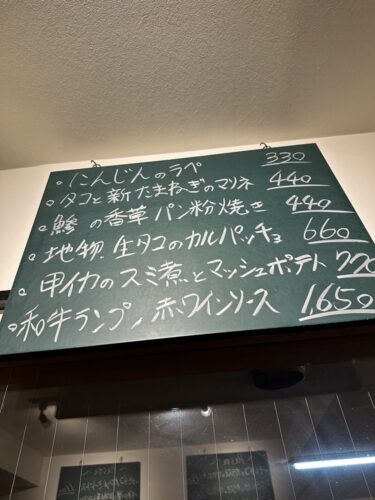 。にんじんのラペ 330
。タコと新たまねぎのマリネ 440
。鯵の香草パン粉焼き 440
。地物.生タコのカルパッチョ 660
。甲イカのスミ煮とマッシュポテト 770
。和牛ランプ,赤ワインソース 1,650